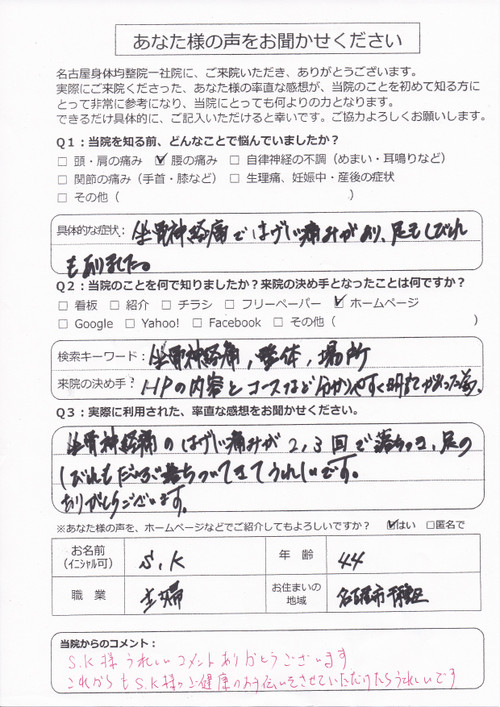 あなた様の声をお聞かせください
名古屋身体均整院一社院に、ご来院いただき、ありがとうございます。
実際にご来院くださった、あなた様の率直な感想が、当院のことを初めて知る方に
とって非常に参考になり、当院にとっても何よりの力となります。
できるだけ具体的に、ご記入いただけると幸いです。ご協力よろしくお願いします。
Q1：当院を知る前、どんなことで悩んでいましたか？
□ 頭・肩の痛み ☑ 腰の痛み □ 自律神経の不調（めまい・耳鳴りなど）
□ 関節の痛み（手首・膝など） □ 生理痛、妊娠中・産後の症状
□ その他（ ）
具体的な症状： 坐骨神経痛ではげしい痛みがあり、足もしびれ
もありました。
Q2：当院のことを何で知りましたか？来院の決め手となったことは何ですか？
□ 看板 □ 紹介 □ チラシ □ フリーペーパー ☑ ホームページ
□ Google □ Yahoo! □ Facebook □ その他（ ）
検索キーワード： 坐骨神経痛，整体，場所
来院の決め手？ HPの内容とコースなど分かりやすく明記があった為。
Q3：実際に利用された、率直な感想をお聞かせください。
坐骨神経痛のはげしい痛みが2,3回で落ちつき、足の
しびれもだいぶ落ちついてきてうれしいです。
ありがとうございます。
※あなた様の声を、ホームページなどでご紹介してもよろしいですか？ ☑はい □匿名で
お名前 S.K 年 齢 44
（イニシャル可）
職 業 主婦 お住まいの 名古屋市千種区
地域
当院からのコメント：
S.K様うれしいコメントありがとうございます
これからもS.K様のご健康のお手伝いをさせていただけたらうれしいです